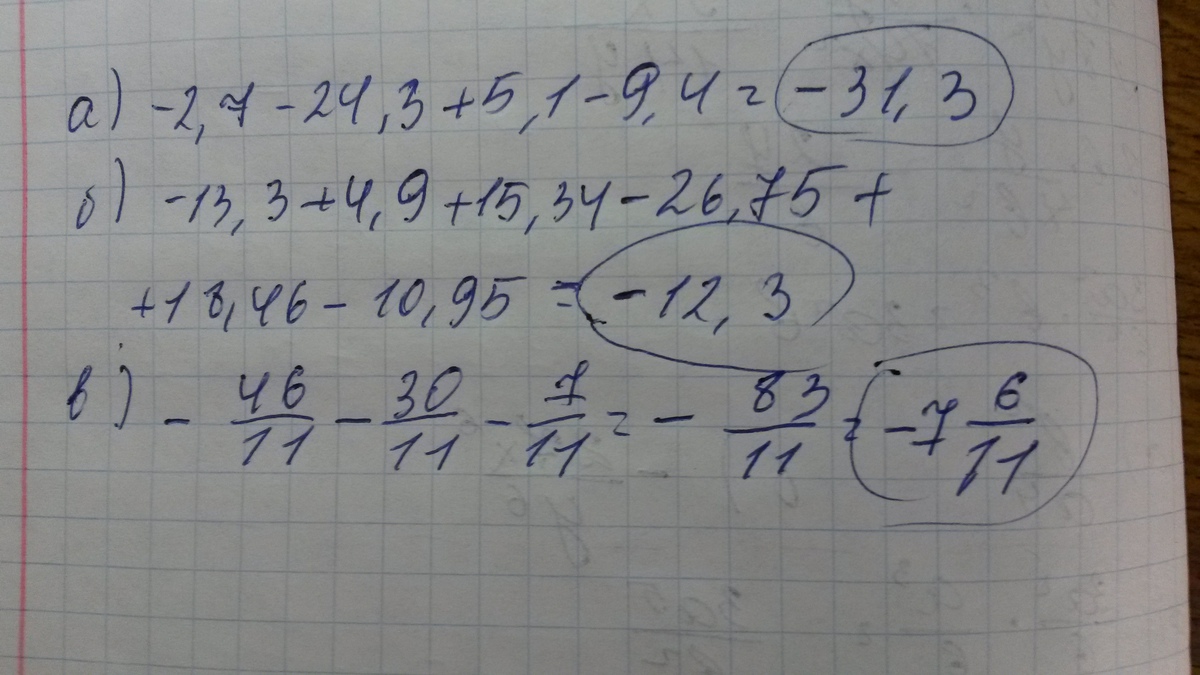 а) -2,7-24,3+5,1-9,4=-31,3
б) -13,3+4,9+15,34-26,75+
+18,46-10,95=-12,3
в) -46/11-30/11-7/11=-83/11=-7 6/11